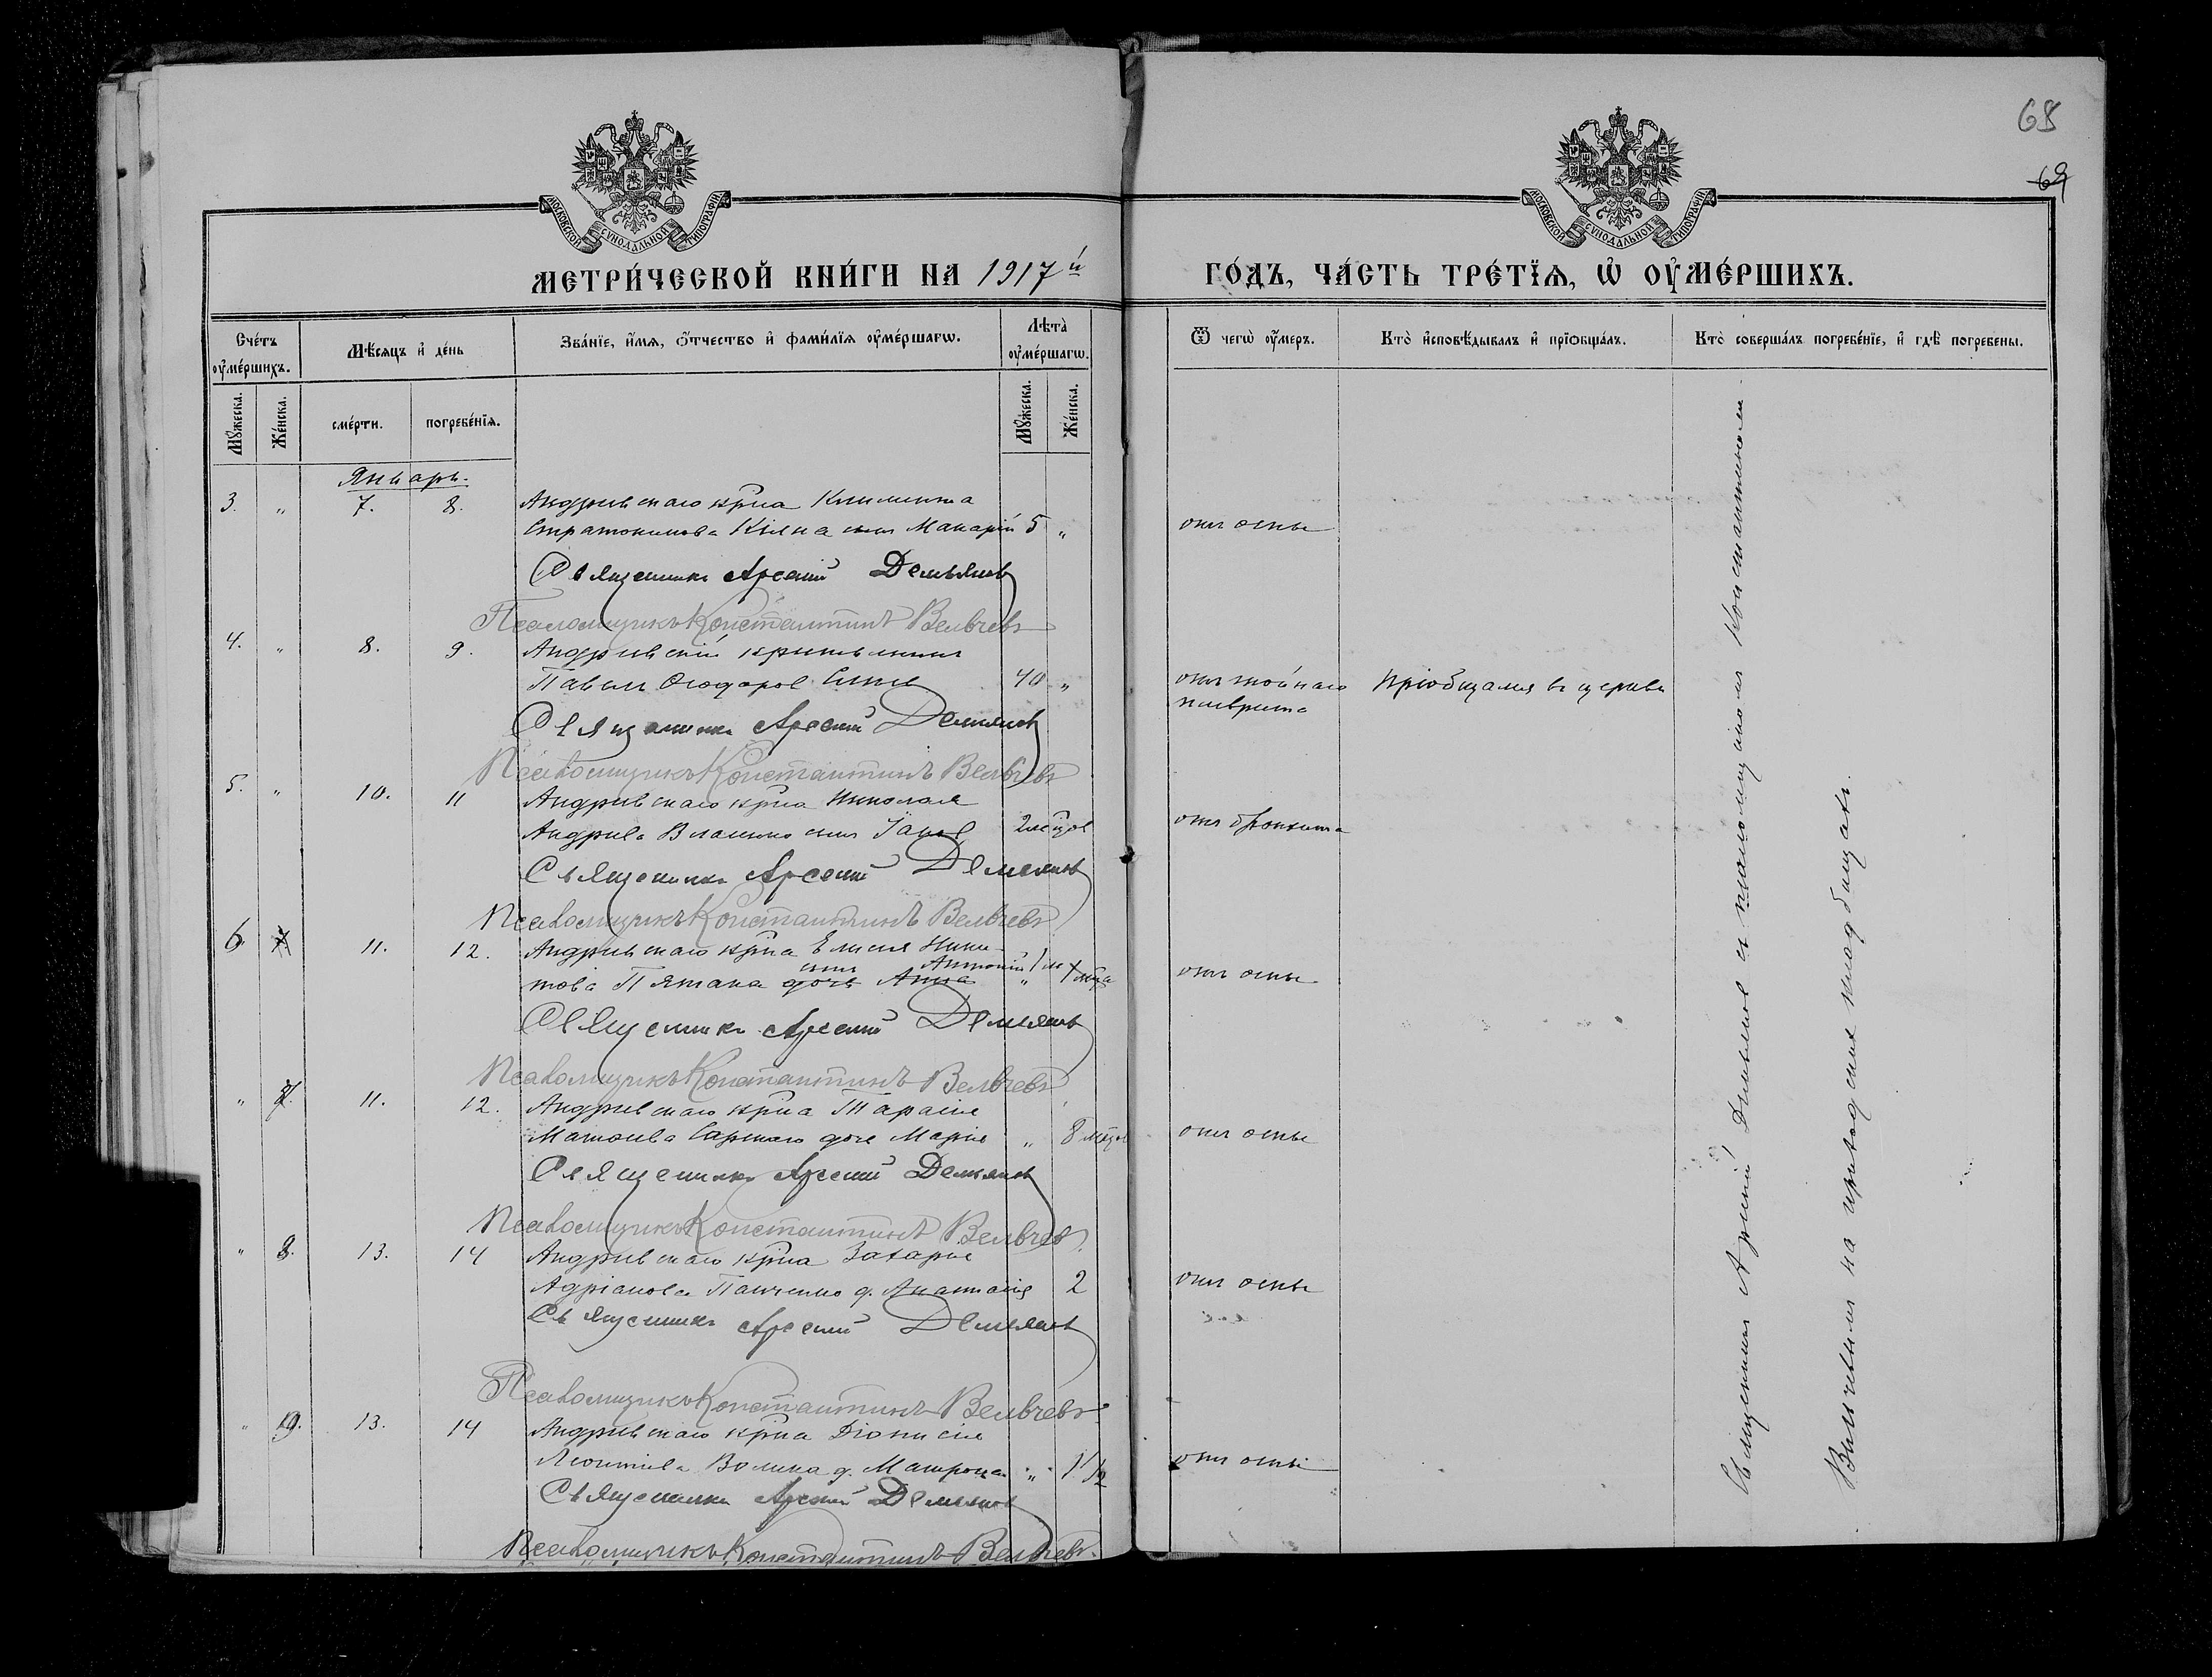 68
69
МОСКОВСКОЙ СѴНОДАЛЬНОЙ ТИПОГРАФІИ
МОСКОВСКОЙ СѴНОДАЛЬНОЙ ТИПОГРАФІИ
МЕТРИ́ЧЕСКОЙ КНИ́ГИ НА 1917й
ГО́ДЪ, ЧА́СТЬ ТРЕ́ТЇѦ, Ѡ҆ ОУ҆МЕ́РШИХЪ.
Сче́тъ оу҆ме́ршихъ.
Мѣ́сѧцъ и҆ де́нь
Зва́нїе, и҆́мѧ, ѻ҆́тчество и҆ фами́лїѧ оу҆ме́ршагѡ.
Лѣта̀ оу҆ме́ршагѡ.
Ѿ чегѡ̀ оу҆́меръ.
Кто̀ и҆сповѣ́дывалъ и҆ прїѻбща́лъ.
Кто̀ соверша́лъ погребе́нїе, и҆ гдѣ̀ погребены.
Мꙋ́жеска.
Же́нска.
сме́рти.
погребе́нїѧ.
Мꙋ́жеска.
Же́нска.
Январь.
3. " 7. 8. Андріевскаго кр҃на Климента
Стратоникова Кіяна сынъ Макарій 5 " отъ оспы
Священникъ Арсеній Демьянов
Псаломщикъ Константинъ Вельчевъ
4. " 8. 9. Андріевскій крестьянинъ
Павелъ Ѳеодоров 40 " отъ гнойнаго пріобщался въ церкви
плеврита
Священникъ Арсеній Демьянов
Псаломщикъ Константинъ Вельчевъ
5. " 10. 11 Андріевскаго кр҃на Николая
Андреева Власенко сынъ Іаков 2 мѣцов отъ бронхита
Священникъ Арсеній Демьянов
Псаломщикъ Константинъ Вельчевъ
6. 7. 11. 12. Андріевскаго кр҃на Елисея Ники-
сынъ Антоній 1 м
това Пятака дочь Анна " 1 мѣца отъ оспы
Священникъ Арсеній Демьянов
Псаломщикъ Константинъ Вельчевъ
" 7. 11. 12. Андріевскаго кр҃на Тарасія
Матѳеева дочь Марія " 8 мѣцов отъ оспы
Священникъ Арсеній Демьянов
Псаломщикъ Константинъ Вельчевъ
" 8. 13. 14 Андріевскаго кр҃на Захарія
Адріанова Панченко д. Анастасія 2 отъ оспы
Священникъ Арсеній Демьянов
Псаломщикъ Константинъ Вельчевъ
" 9. 13. 14 Андріевскаго кр҃на Діонисія
Леонтіева Волика д. Матрона " 1 1/2 отъ оспы
Священникъ Арсеній Демьянов
Псаломщикъ Константинъ Вельчевъ
Священникъ Арсеній Демьянов съ псаломщикомъ Константиномъ
Вельчевымъ на приходском кладбищѣ.